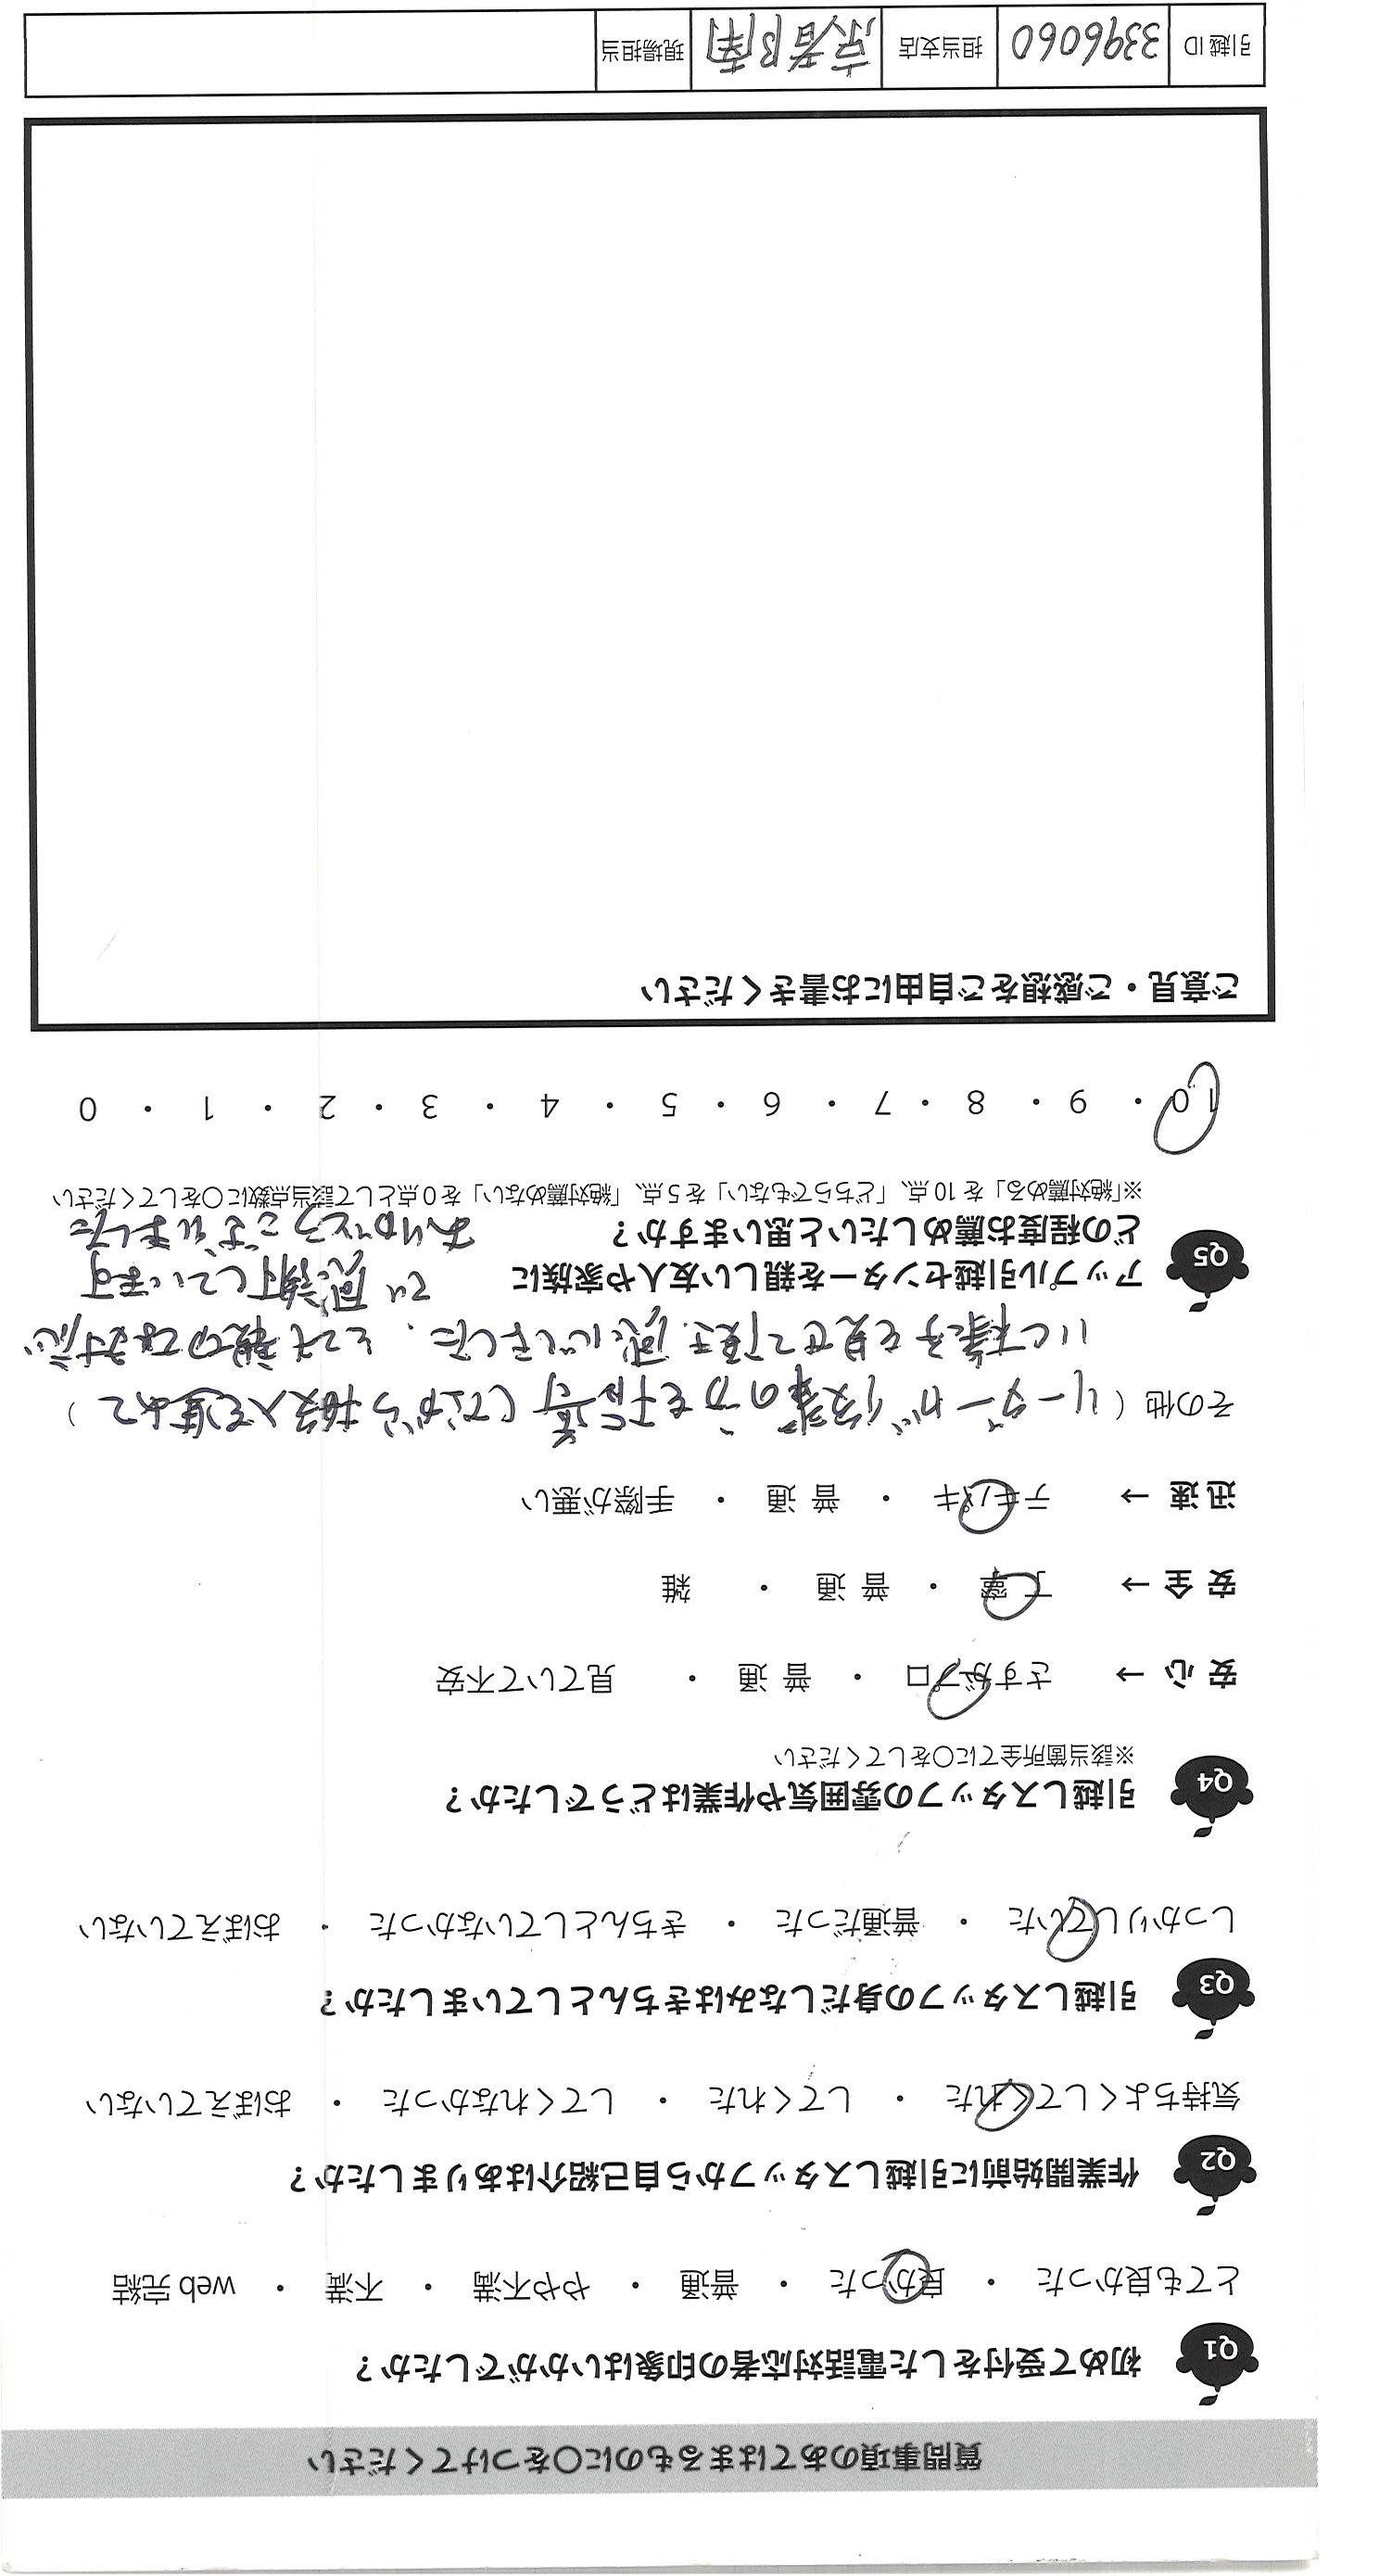 質問事項のあてはまるものに〇をつけてください
Q1 初めて受付をした電話対応者の印象はいかがでしたか？
とても良かった ・ 良かった ・ 普通 ・ やや不満 ・ 不満 ・ web 完結
Q2 作業開始前に引越しスタッフから自己紹介はありましたか？
気持ちよくしてくれた ・ してくれた ・ してくれなかった ・ おぼえていない
Q3 引越しスタッフの身だしなみはきちんとしていましたか？
しっかりしていた ・ 普通だった ・ きちんとしていなかった ・ おぼえていない
Q4 引越しスタッフの雰囲気や作業はどうでしたか？
※該当箇所全てに〇をしてください
安 心 → さすがプロ ・ 普 通 ・ 見ていて不安
安 全 → 丁 寧 ・ 普 通 ・ 雑
迅 速 → テキパキ ・ 普 通 ・ 手際が悪い
その他 ( リーダーが後輩の方を指導しながら搬入を進めて )
いく様子を見せて頂き、感心しました。とても親切な対応
で感謝しています
ありがとうございました
Q5 アップル引越センターを親しい友人や家族に
どの程度お薦めしたいと思いますか？
※「絶対薦める」を 10 点、「どちらでもない」を 5 点、「絶対薦めない」を 0 点として該当点数に〇をしてください
10 ・ 9 ・ 8 ・ 7 ・ 6 ・ 5 ・ 4 ・ 3 ・ 2 ・ 1 ・ 0
ご意見・ご感想をご自由にお書きください
引越 ID 3396060 担当支店 京都南 現場担当